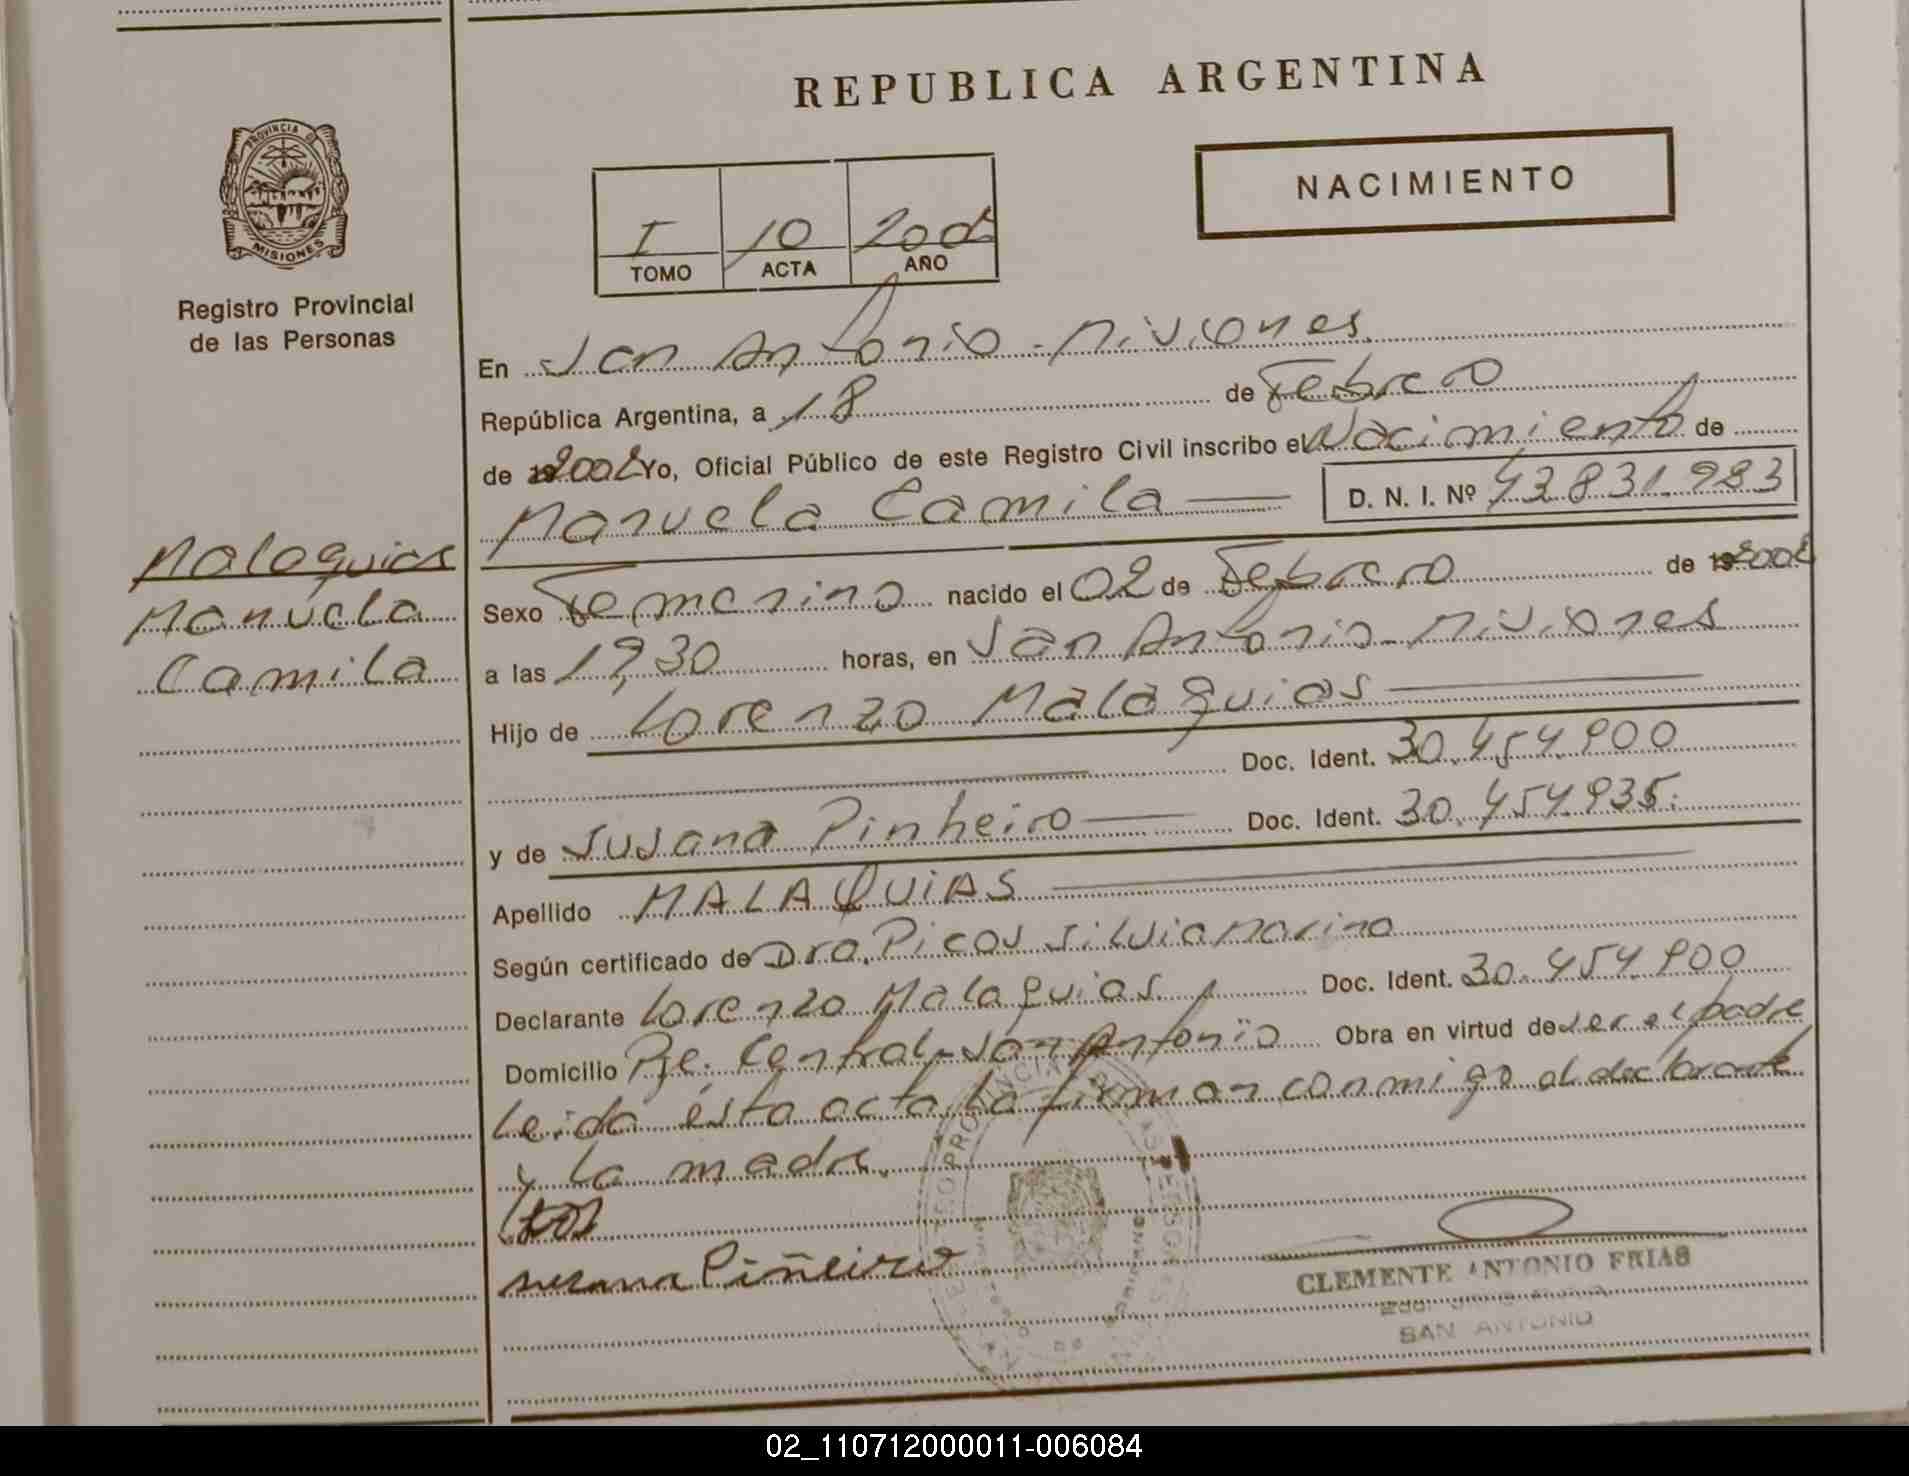 REPUBLICA ARGENTINA
NACIMIENTO
I 10 2002
TOMO ACTA AÑO
PROVINCIA DE
MISIONES
Registro Provincial
de las Personas
En San Antonio - Misiones
República Argentina, a 18 de Febrero
de 2002 Yo, Oficial Público de este Registro Civil inscribo el Nacimiento de
Manuela Camila D. N. I. Nº 43831.983
Malaquias
Manuela
Camila
Sexo Femenino nacido el 02 de Febrero de 2002
a las 19,30 horas, en San Antonio - Misiones
Hijo de Lorenzo Malaquias
Doc. Ident. 30.454.900
y de Susana Pinheiro Doc. Ident. 30.454.935.
Apellido MALAQUiAS
Según certificado de Dra. Picos Silvia Marina
Declarante Lorenzo Malaquias Doc. Ident. 30.454.900
Domicilio Pje. Central - San Antonio Obra en virtud de ser el padre
Leida ésta acta la firman conmigo el declarante
y la madre.
susana Piñeiro
CLEMENTE ANTONIO FRIAS
SAN ANTONIO
02_110712000011-006084